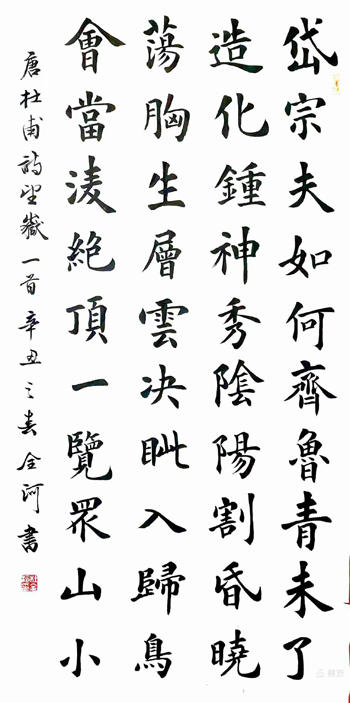 岱宗夫如何齊魯青未了
造化鍾神秀陰陽割昏曉
蕩胸生層雲决眦入歸鳥
會當淩絶頂一覽眾山小
唐杜甫詩望嶽一首辛丑之春全河書